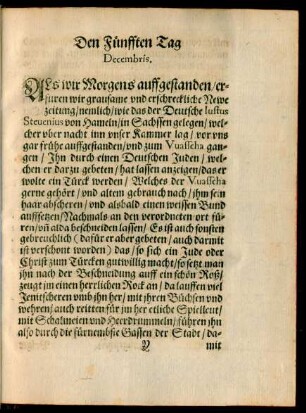 Den Fünfften Tag
Decembris.
ALs wir Morgens auffgestanden/ er-
furen wir grausame vnd erschreckliche Newe
zeitung/ nemlich/ wie das der Deutsche Iustus
Steuenius von Hameln/ in Sachssen gelegen/ wel-
cher vber nacht inn vnser Kammer lag/ vor vns
gar frühe auffgestanden/ vnd zum Vuascha gan-
gen/ Jhn durch einen Deutschen Juden/ wel-
chen er darzu gebeten/ hat lassen anzeigen/ das er
wolte ein Türck werden/ Welches der Vuascha
gerne gehört/ vnd altem gebrauch nach/ jhm sein
haar abscheren/ vnd alsbald einen weissen Bund
auffsetzen/ Nachmals an den verordneten ort fü-
ren/ vñ alda beschneiden lassen/ Es ist auch sonsten
gebreuchlich (dafür er aber gebeten/ auch darmit
ist verschont worden) das/ so sich ein Jude oder
Christ zum Türcken gutwillig macht/ so setzt man
jhn nach der Beschneidung auff ein schön Roß/
zeugt jm einen herrlichen Rock an/ da lauffen viel
Jenitscheren vmb jhn her/ mit jhren Büchsen vnd
wehren/ auch reitten für jm her etliche Spielleut/
mit Schalmeien vnd Heerdrummeln/ führen jhn
also durch die fürnembste Gassen der Stadt/ da-
Y mit